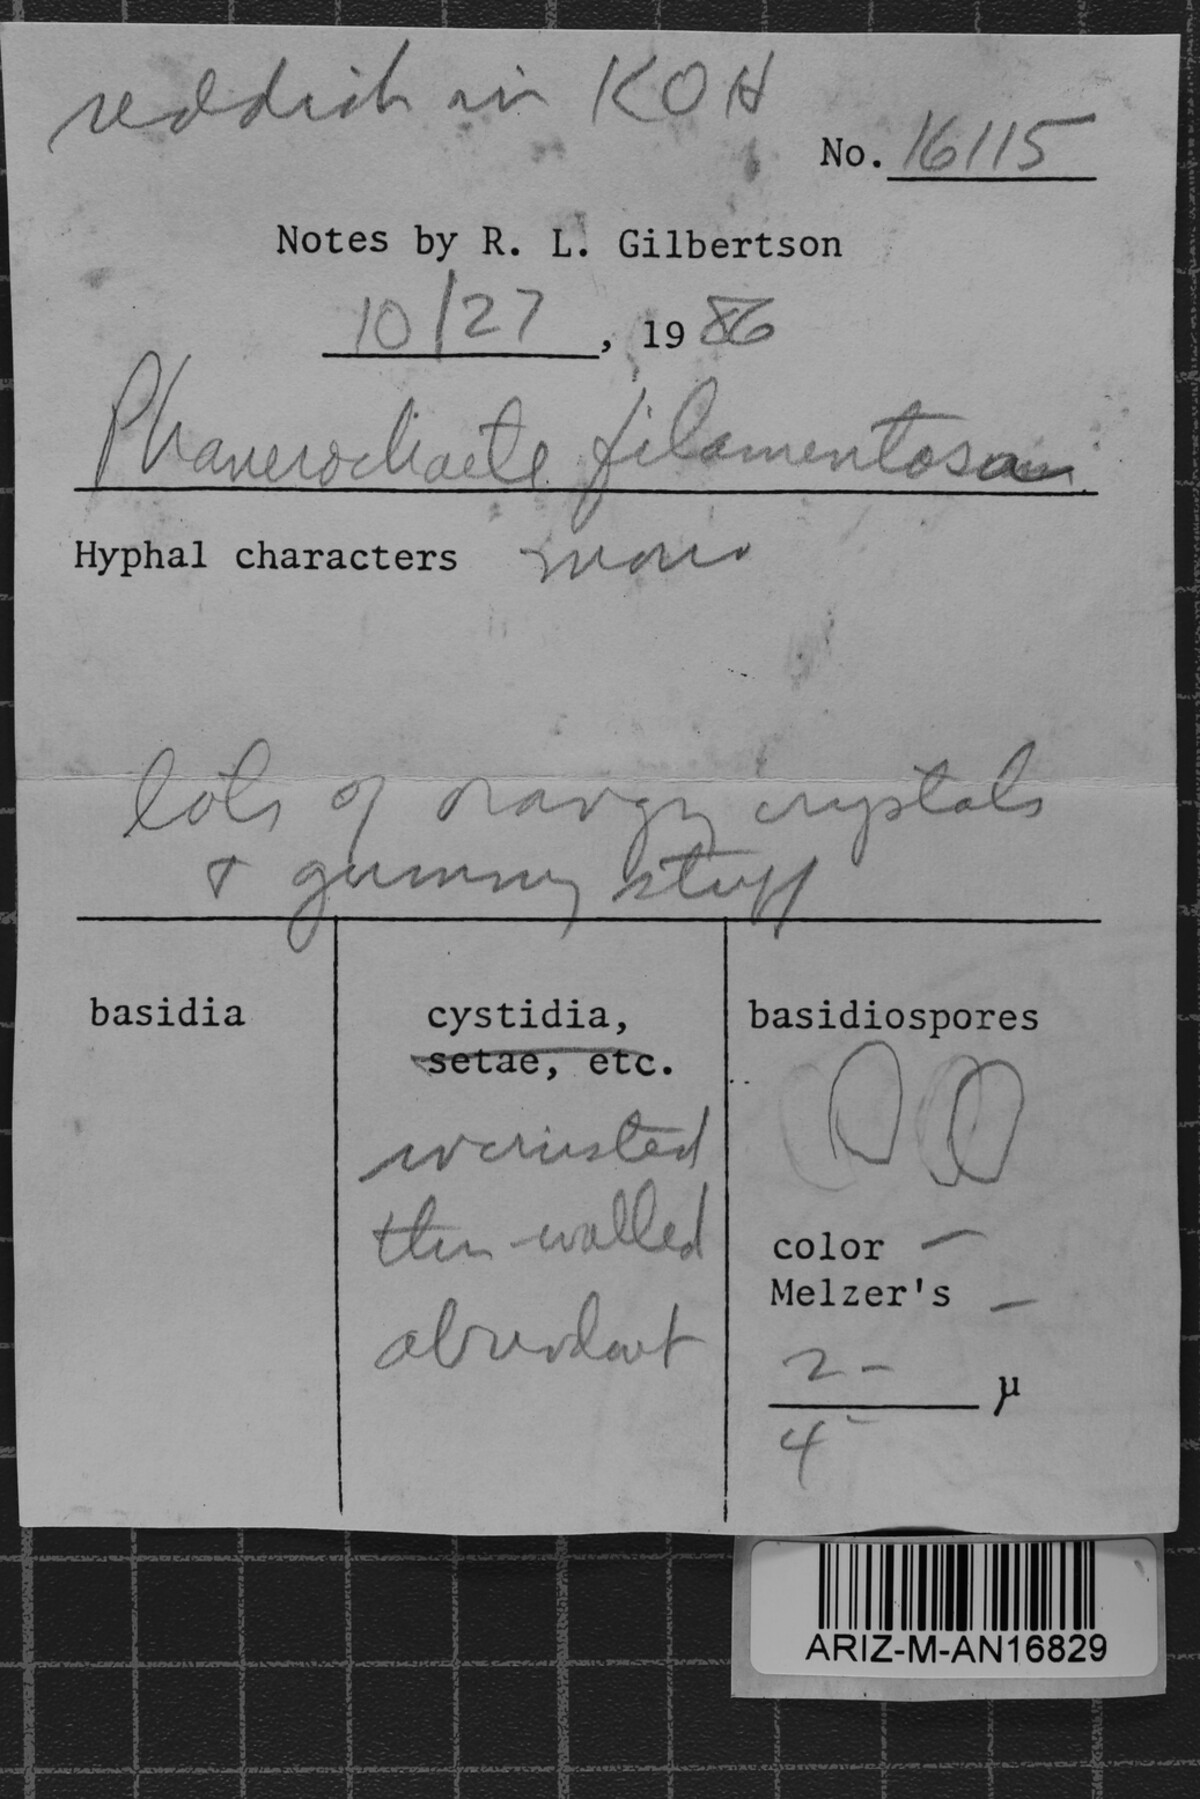 reddish in KOH
No. 16115
Notes by R. L. Gilbertson
10/27, 1986
Phanerochaete filamentosa
Hyphal characters mono
lots of orangy crystals
+ gummy stuff
basidia
cystidia,
setae, etc.
incrusted
thin-walled
abundant
basidiospores
color –
Melzer's –
2– µ
4
ARIZ-M-AN16829